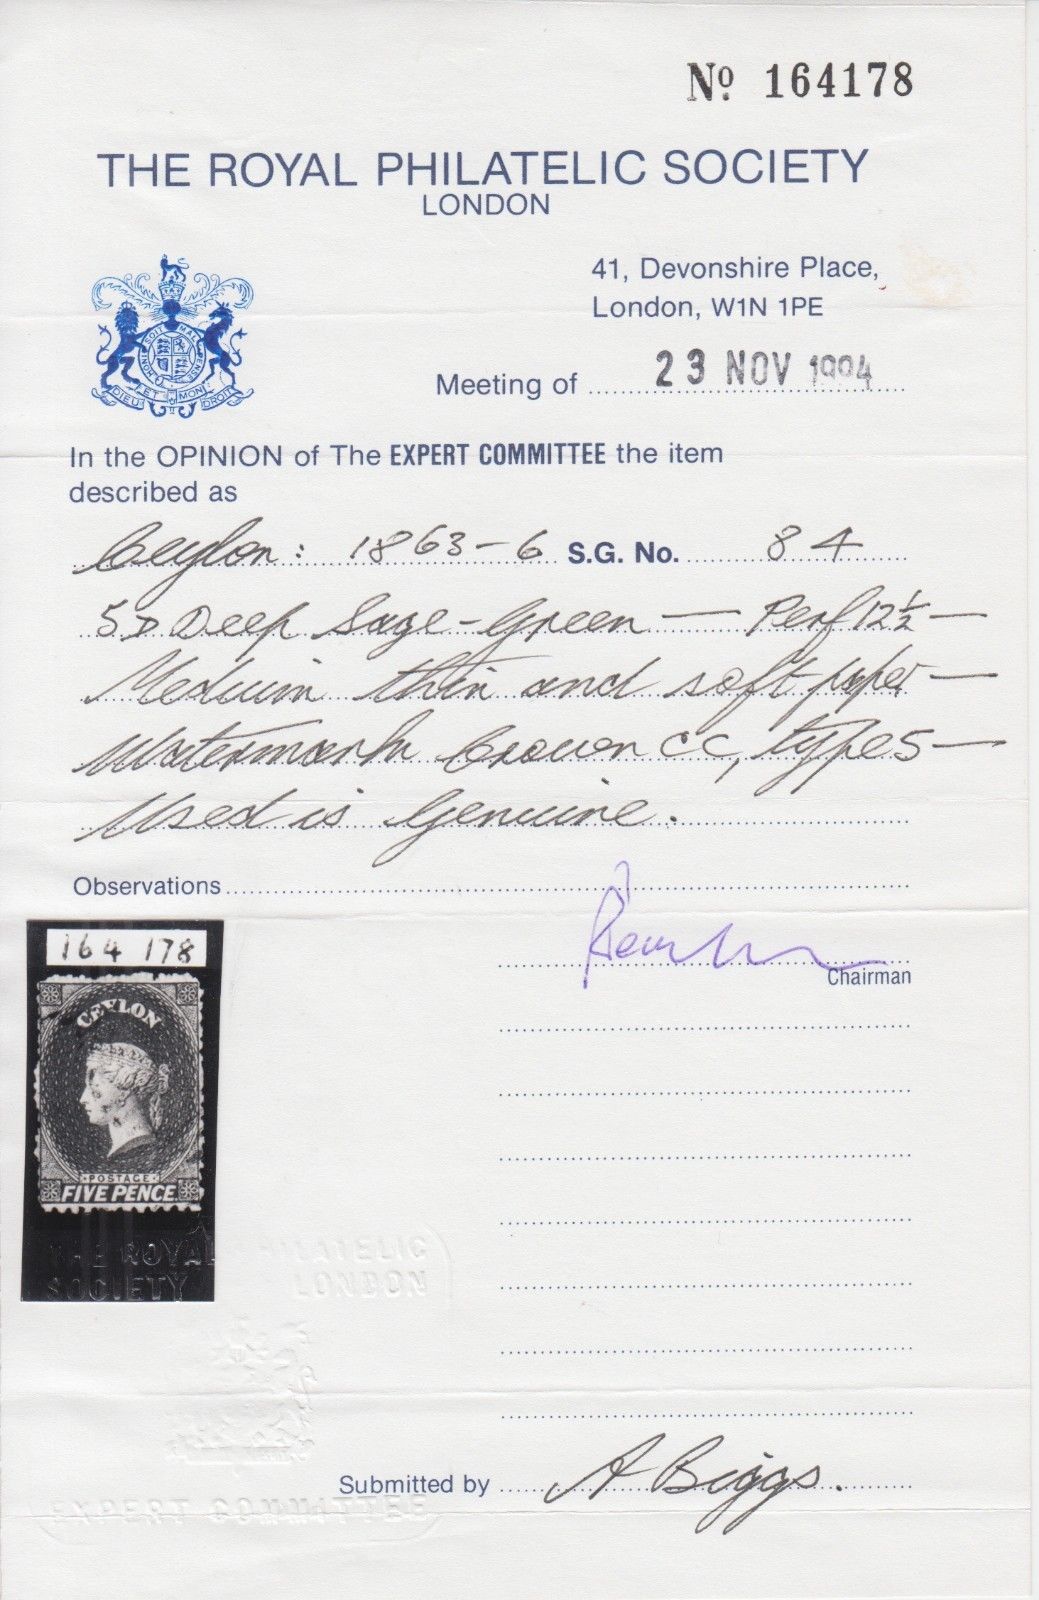 Nº 164178
THE ROYAL PHILATELIC SOCIETY
LONDON
41, Devonshire Place,
London, W1N 1PE
SOIT MAL Y PENSE HONI
DIEU ET MON DROIT
Meeting of 23 NOV 1994
In the OPINION of The EXPERT COMMITTEE the item
described as
Ceylon: 1863-6 S.G. No. 84
5D Deep Sage-Green — Perf 12½ —
Medium thin and soft paper —
Watermark Crown CC, type 5 —
Used is Genuine.
Observations
Chairman
164 178
CEYLON
POSTAGE
FIVE PENCE
THE ROYAL PHILATELIC
SOCIETY LONDON
Submitted by A Biggs.
EXPERT COMMITTEE